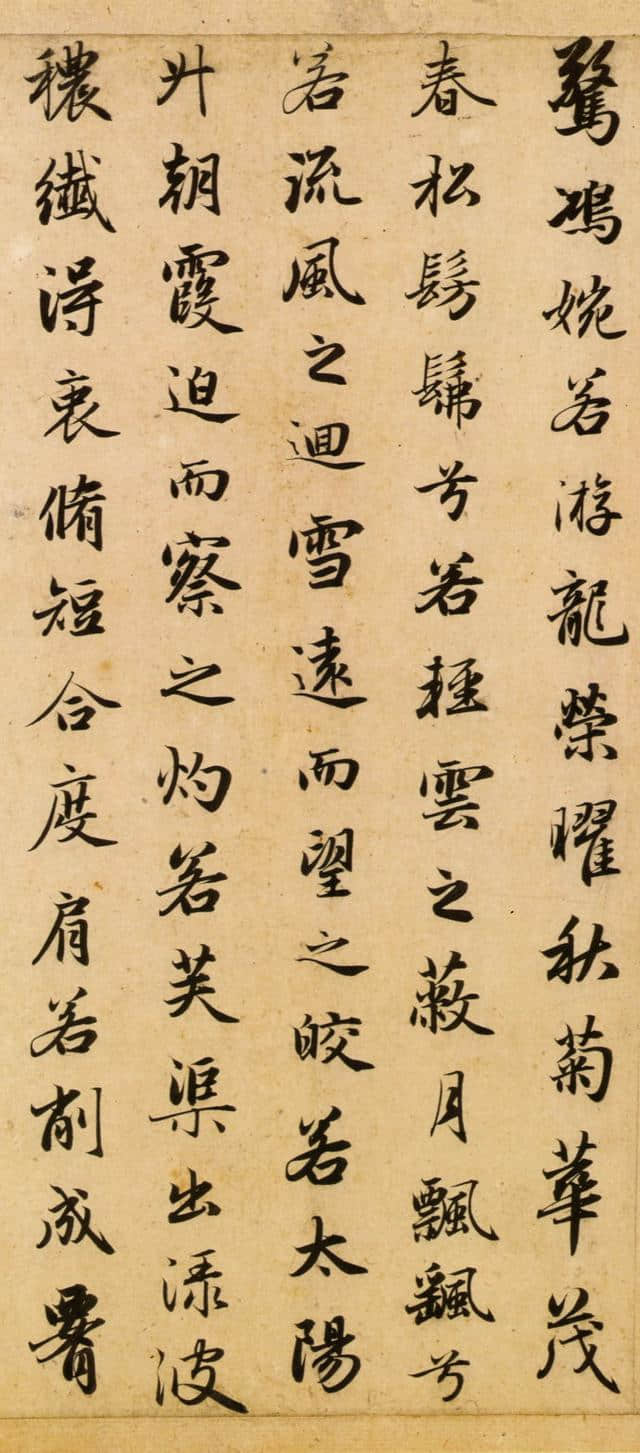 驚鴻婉若游龍榮曜秋菊華茂
春松髣髴兮若輕雲之蔽月飄飖兮
若流風之迴雪遠而望之皎若太陽
升朝霞迫而察之灼若芙渠出淥波
穠纖得衷脩短合度肩若削成署